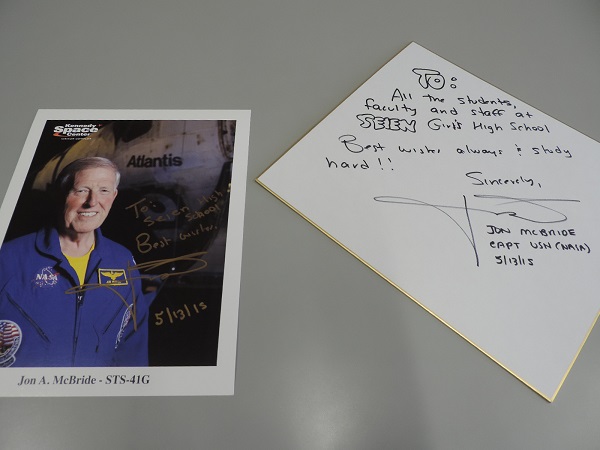 Kennedy
Space
Center
Atlantis
To:
Seien High
School
Best wishes,
NASA
5/13/15
Jon A. McBride - STS-41G
To:
All the students,
faculty and staff at
SEIEN Girl's High School
Best wishes always & study
hard!!
Sincerely,
JON McBRIDE
CAPT USN (NASA)
5/13/15